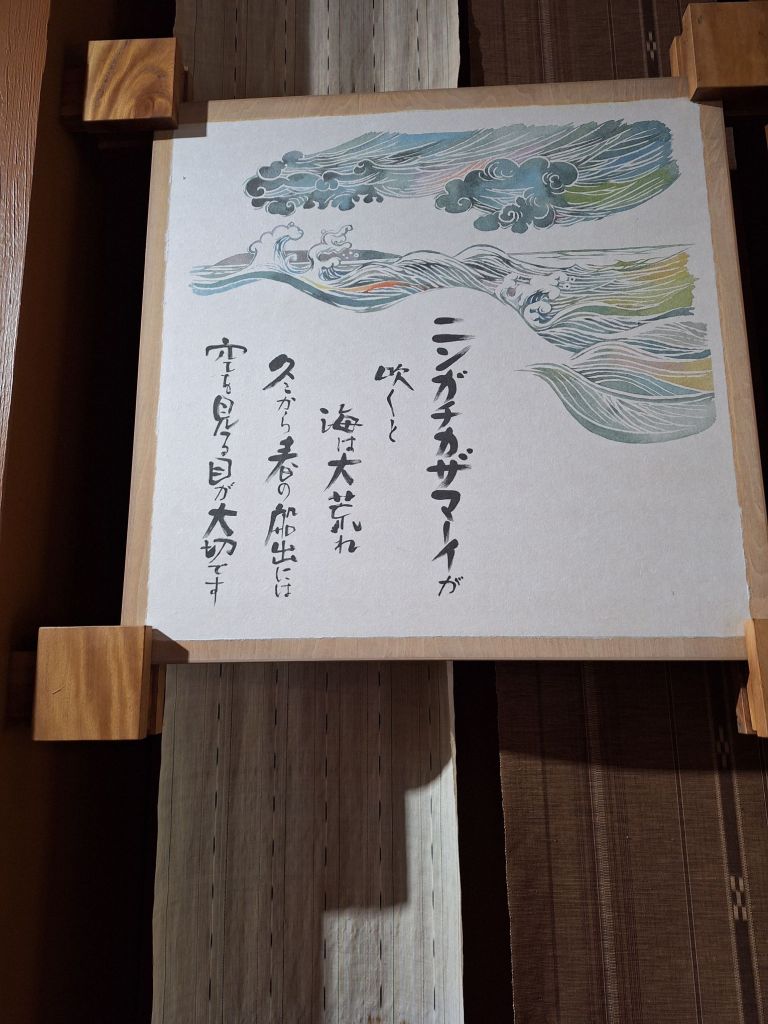 ニンガチカザマーイが
吹くと
海は大荒れ
冬から春の船出には
空を見る目が大切です